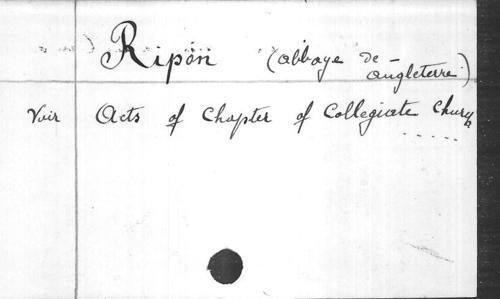 Ripon (abbaye de -
angleterre)
Voir Acts of Chapter of Collegiate Church
.....